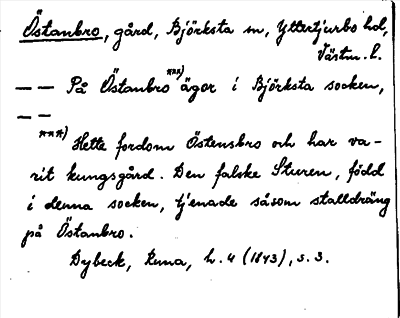 Östanbro, gård, Björksta sn, Yttertjurbo hd,
Västm. l.
— — På Östanbro ***) ägor i Björksta socken,
— —
***) Hette fordom Östensbro och har va-
rit kungsgård. Den falske Sturen, född
i denna socken, tjenade såsom stalldräng
på Östanbro.
Dybeck, Runa, h. 4 (1843), s. 3.